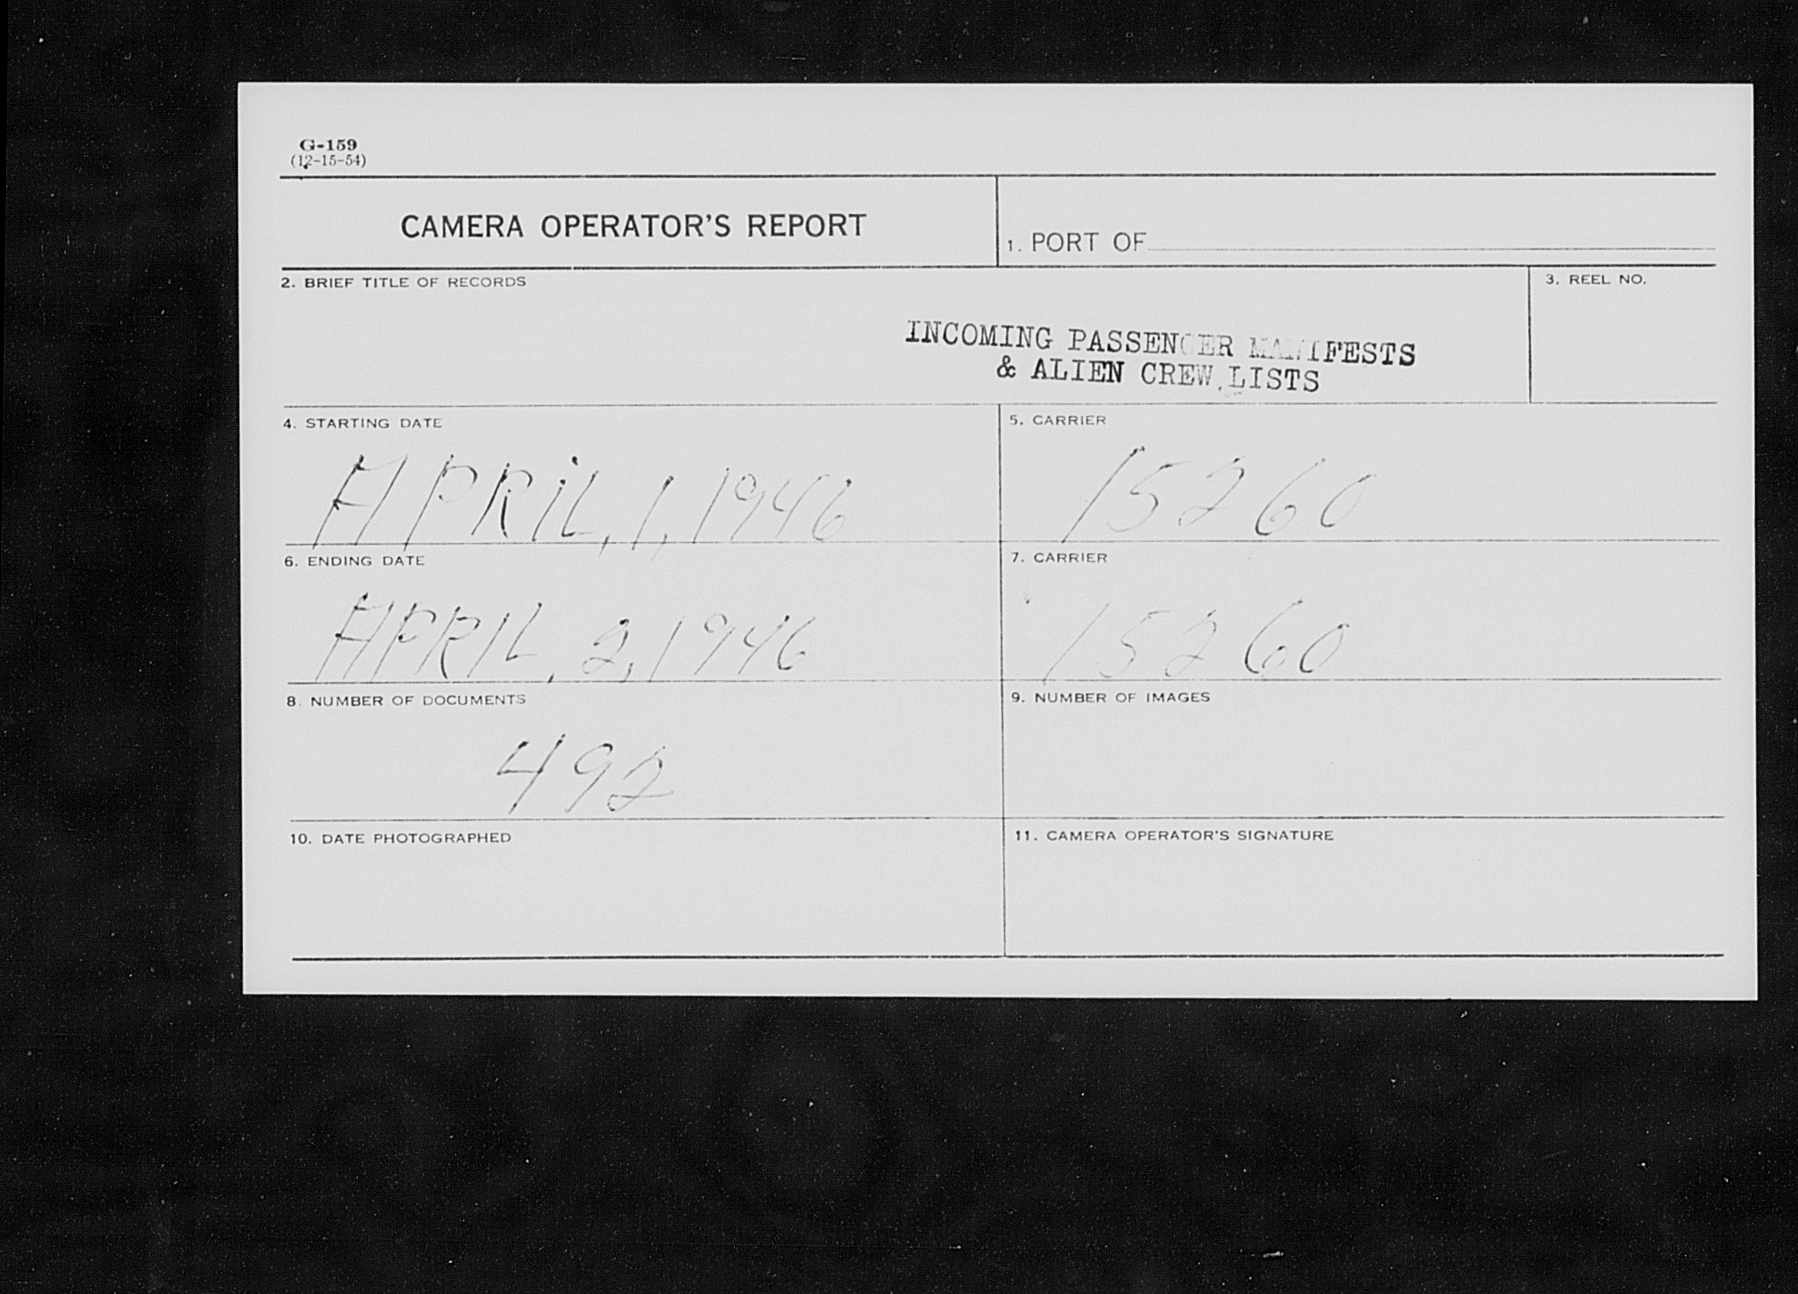 G-159
(12-15-54)
CAMERA OPERATOR'S REPORT
1. PORT OF
2. BRIEF TITLE OF RECORDS
3. REEL NO.
INCOMING PASSENGER MANIFESTS
& ALIEN CREW LISTS
4. STARTING DATE
5. CARRIER
APRIL, 1, 1946
15260
6. ENDING DATE
7. CARRIER
APRIL, 2, 1946
15260
8. NUMBER OF DOCUMENTS
9. NUMBER OF IMAGES
492
10. DATE PHOTOGRAPHED
11. CAMERA OPERATOR'S SIGNATURE